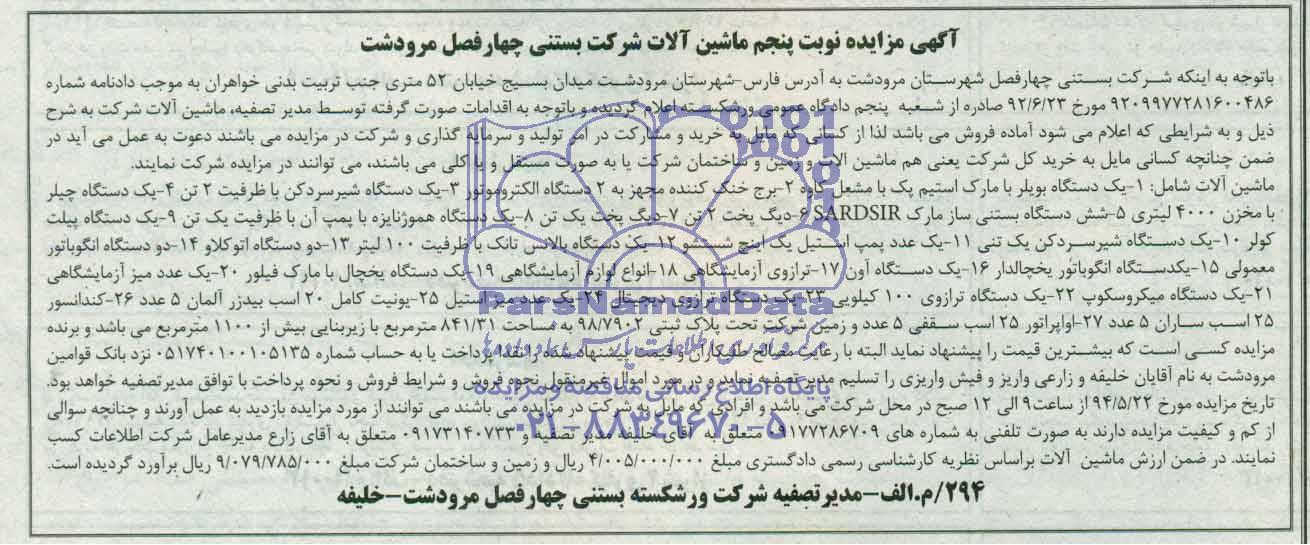 آگهی مزایده نوبت پنجم ماشین آلات شرکت بستنی چهارفصل مرودشت
باتوجه به اینکه شرکت بستنی چهارفصل شهرستان مرودشت به آدرس فارس-شهرستان مرودشت میدان بسیج خیابان ۵۲ متری جنب تربیت بدنی خواهران به موجب دادنامه شماره
۹۲۰۹۹۷۷۲۸۱۶۰۰۴۸۶ مورخ ۹۲/۶/۲۳ صادره از شعبه پنجم دادگاه عمومی ورشکسته اعلام گردیده و باتوجه به اقدامات صورت گرفته توسط مدیر تصفیه، ماشین آلات شرکت به شرح
ذیل و به شرایطی که اعلام می شود آماده فروش می باشد لذا از کسانی که مایل به خرید و مشارکت در امر تولید و سرمایه گذاری و شرکت در مزایده می باشند دعوت به عمل می آید در
ضمن چنانچه کسانی مایل به خرید کل شرکت یعنی هم ماشین الات و زمین و ساختمان شرکت یا به صورت مستقل و یا کلی می باشند، می توانند در مزایده شرکت نمایند.
ماشین آلات شامل: ۱-یک دستگاه بویلر با مارک استیم پک با مشعل کاوه ۲-برج خنک کننده مجهز به ۲ دستگاه الکتروموتور ۳-یک دستگاه شیرسردکن با ظرفیت ۲ تن ۴-یک دستگاه چیلر
با مخزن ۴۰۰۰ لیتری ۵-شش دستگاه بستنی ساز مارک SARDSIR ۶-دیگ پخت ۲ تن ۷-دیگ پخت یک تن ۸-یک دستگاه هموژنایزه با پمپ آن با ظرفیت یک تن ۹-یک دستگاه پیلت
کولر ۱۰-یک دستگاه شیرسردکن یک تنی ۱۱-یک عدد پمپ استیل یک اینچ شستشو ۱۲-یک دستگاه بالانس تانک با ظرفیت ۱۰۰ لیتر ۱۳-دو دستگاه اتوکلاو ۱۴-دو دستگاه انگوباتور
معمولی ۱۵-یکدستگاه انگوباتور یخچالدار ۱۶-یک دستگاه آون ۱۷-ترازوی آزمایشگاهی ۱۸-انواع لوازم آزمایشگاهی ۱۹-یک دستگاه یخچال با مارک فیلور ۲۰-یک عدد میز آزمایشگاهی
۲۱-یک دستگاه میکروسکوپ ۲۲-یک دستگاه ترازوی ۱۰۰ کیلویی ۲۳-یک دستگاه ترازوی دیجیتال ۲۴-یک عدد میز استیل ۲۵-یونیت کامل ۲۰ اسب بیدزر آلمان ۵ عدد ۲۶-کندانسور
۲۵ اسب ساران ۵ عدد ۲۷-اواپراتور ۲۵ اسب سقفی ۵ عدد و زمین شرکت تحت پلاک ثبتی ۹۸/۷۹۰۲ به مساحت ۸۴۱/۳۱ مترمربع با زیربنایی بیش از ۱۱۰۰ مترمربع می باشد و برنده
مزایده کسی است که بیشترین قیمت را پیشنهاد نماید البته با رعایت مصالح طلبکاران و قیمت پیشنهاد شده را نقدا پرداخت یا به حساب شماره ۰۵۱۷۴۰۱۰۰۱۰۵۱۳۵ نزد بانک قوامین
مرودشت به نام آقایان خلیفه و زارعی واریز و فیش واریزی را تسلیم مدیر تصفیه نماید و در مورد اموال غیرمنقول نحوه فروش و شرایط فروش و نحوه پرداخت با توافق مدیرتصفیه خواهد بود.
تاریخ مزایده مورخ ۹۴/۵/۲۲ از ساعت ۹ الی ۱۲ صبح در محل شرکت می باشد و افرادی که مایل به شرکت در مزایده می باشند می توانند از مورد مزایده بازدید به عمل آورند و چنانچه سوالی
از کم و کیفیت مزایده دارند به صورت تلفنی به شماره های ۰۹۱۷۷۲۸۶۷۰۹ متعلق به آقای خلیفه مدیر تصفیه و ۰۹۱۷۳۱۴۰۷۳۳ متعلق به آقای زارع مدیرعامل شرکت اطلاعات کسب
نمایند. در ضمن ارزش ماشین آلات براساس نظریه کارشناسی رسمی دادگستری مبلغ ۴/۰۰۵/۰۰۰/۰۰۰ ریال و زمین و ساختمان شرکت مبلغ ۹/۰۷۹/۷۸۵/۰۰۰ ریال برآورد گردیده است.
۲۹۴/م.الف-مدیرتصفیه شرکت ورشکسته بستنی چهارفصل مرودشت-خلیفه
ParsNamadData
پایگاه اطلاع رسانی مناقصه و مزایده
۰۲۱-۸۸۳۴۹۶۷۰-۵